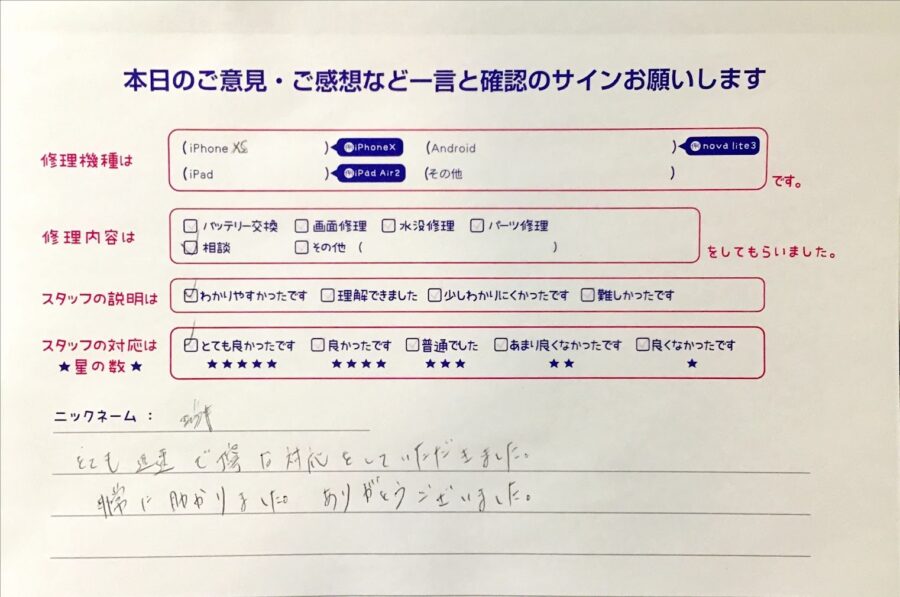 本日のご意見・ご感想など一言と確認のサインお願いします
修理機種は
(iPhone XS ) 例 iPhoneX (Android ) 例 nova lite3
(iPad ) 例 iPad Air2 (その他 )
です。
修理内容は
バッテリー交換 画面修理 水没修理 パーツ修理
相談 その他 ( )
をしてもらいました。
スタッフの説明は
わかりやすかったです 理解できました 少しわかりにくかったです 難しかったです
スタッフの対応は
★星の数★
とても良かったです 良かったです 普通でした あまり良くなかったです 良くなかったです
★★★★★ ★★★★ ★★★ ★★ ★
ニックネーム：
とても迅速で な対応をしていただきました。
非常に助かりました。 ありがとうございました。